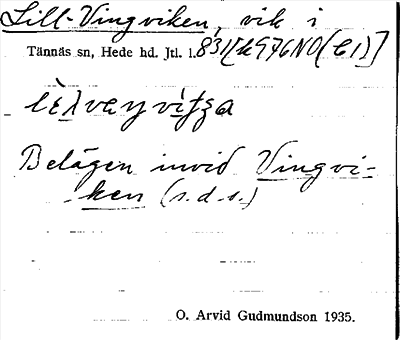 Lill-Vingviken, vik i
Tännäs sn, Hede hd. Jtl. 1.831[k976NO(C1)]
Belägen invid Vingvi-
ken (s.d.o.)
O. Arvid Gudmundson 1935.